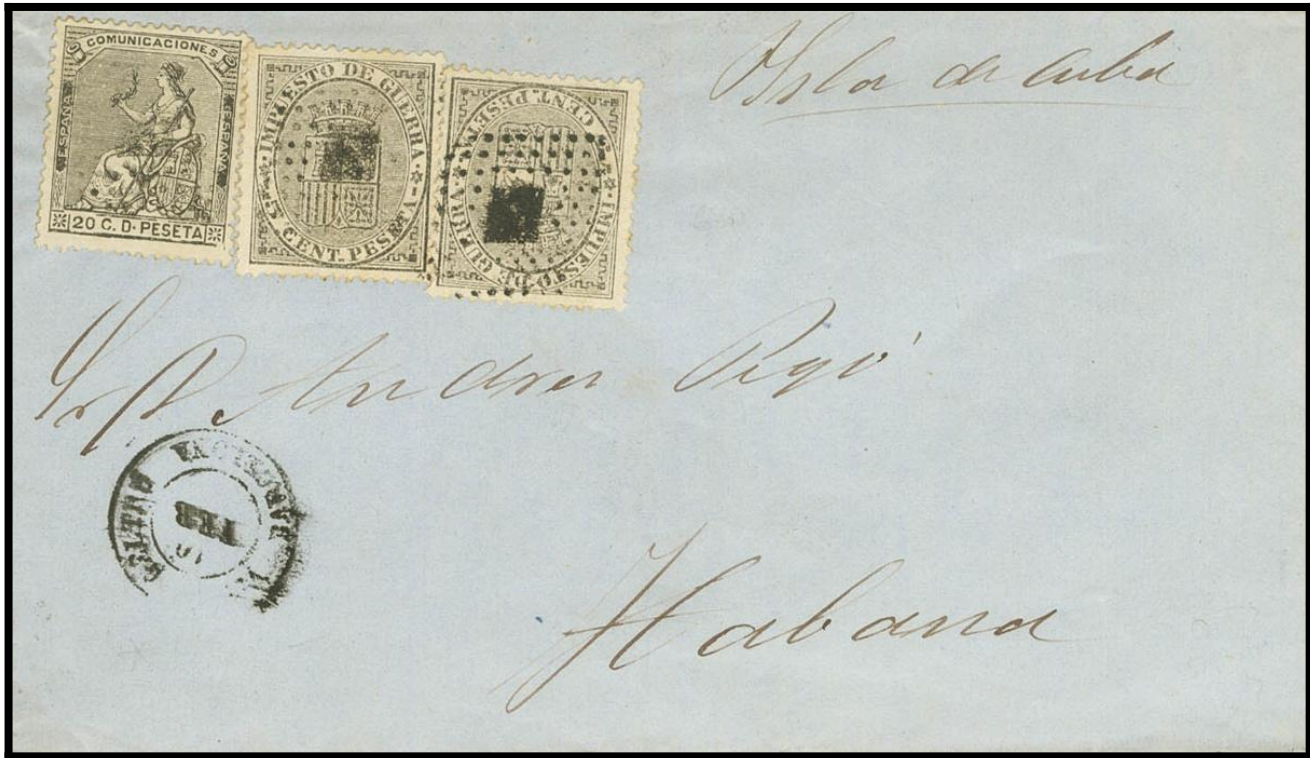 COMUNICACIONES
ESPAÑA
ESPAÑA
20 C. D. PESETA
IMPUESTO DE GUERRA
5 CENT. PESETA
IMPUESTO DE GUERRA
5 CENT. PESETA
Isla de Cuba
Sr D. Andres
Habana
FEB